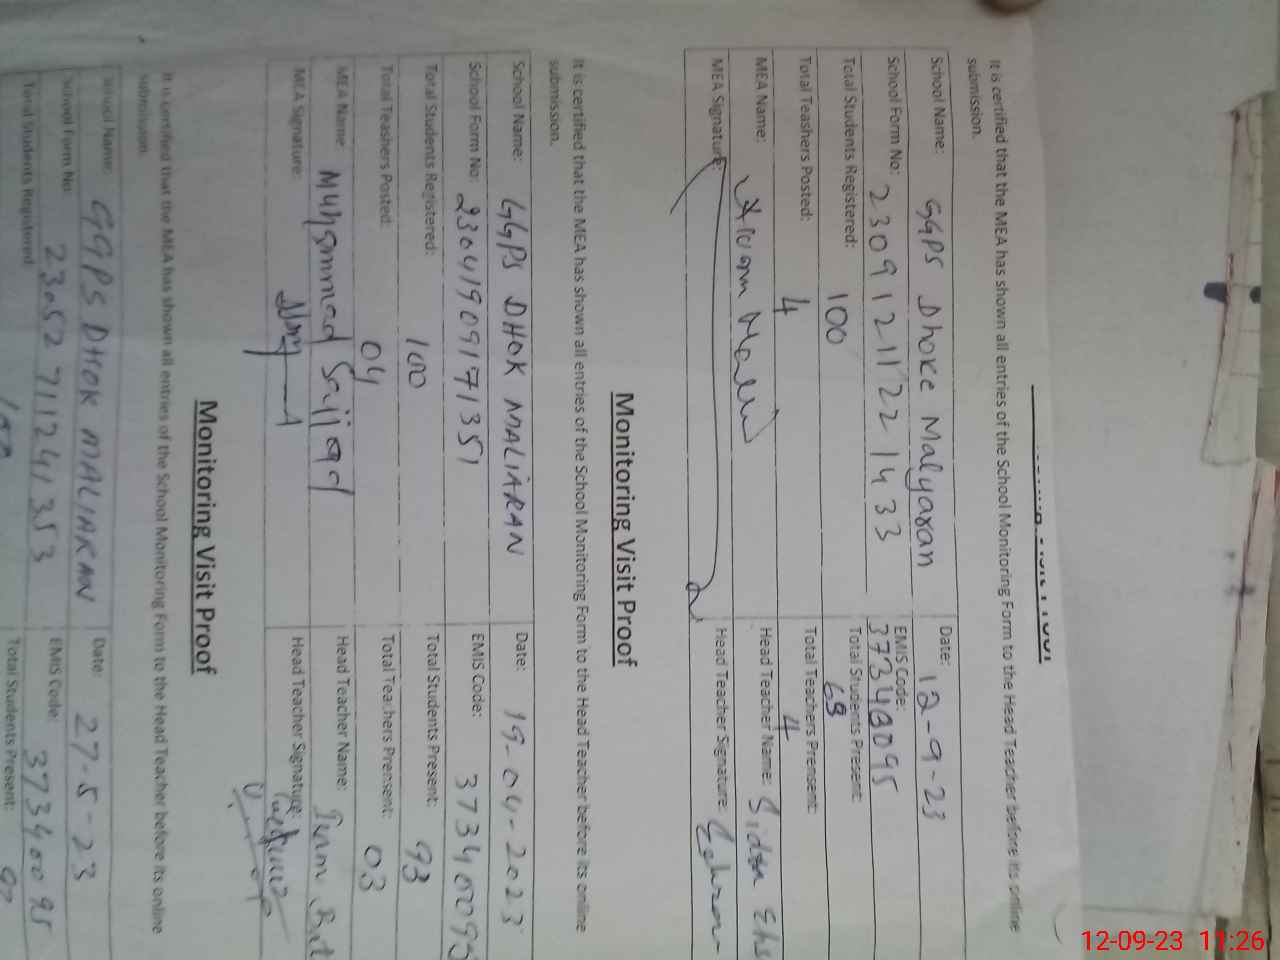 It is certified that the MEA has shown all entries of the School Monitoring Form to the Head Teacher before its online
submission.
School Name: GGPS Dhoke Malyaran Date: 12-9-23
School Form No: 2309121122 1433 EMIS Code: 37340095
Total Students Registered: 100 Total Students Present: 69
Total Teashers Posted: 4 Total Teachers Prensent: 4
MEA Name: Head Teacher Name: Sidra Ehs
MEA Signature: Head Teacher Signature:
Monitoring Visit Proof
It is certified that the MEA has shown all entries of the School Monitoring Form to the Head Teacher before its online
submission.
School Name: GGPS DHOK MALIARAN Date: 19-04-2023
School Form No: 23041909171351 EMIS Code: 37340095
Total Students Registered: 100 Total Students Present: 93
Total Teashers Posted: 04 Total Teachers Prensent: 03
MEA Name: Muhammad Sajjad Head Teacher Name: Irum But
MEA Signature: Head Teacher Signature:
Monitoring Visit Proof
It is certified that the MEA has shown all entries of the School Monitoring Form to the Head Teacher before its online
submission.
School Name: GGPS DHOK MALIARAN Date: 27-5-23
School Form No: 23052711241353 EMIS Code: 37340095
Total Students Registered: 100 Total Students Present:
12-09-23 11:26